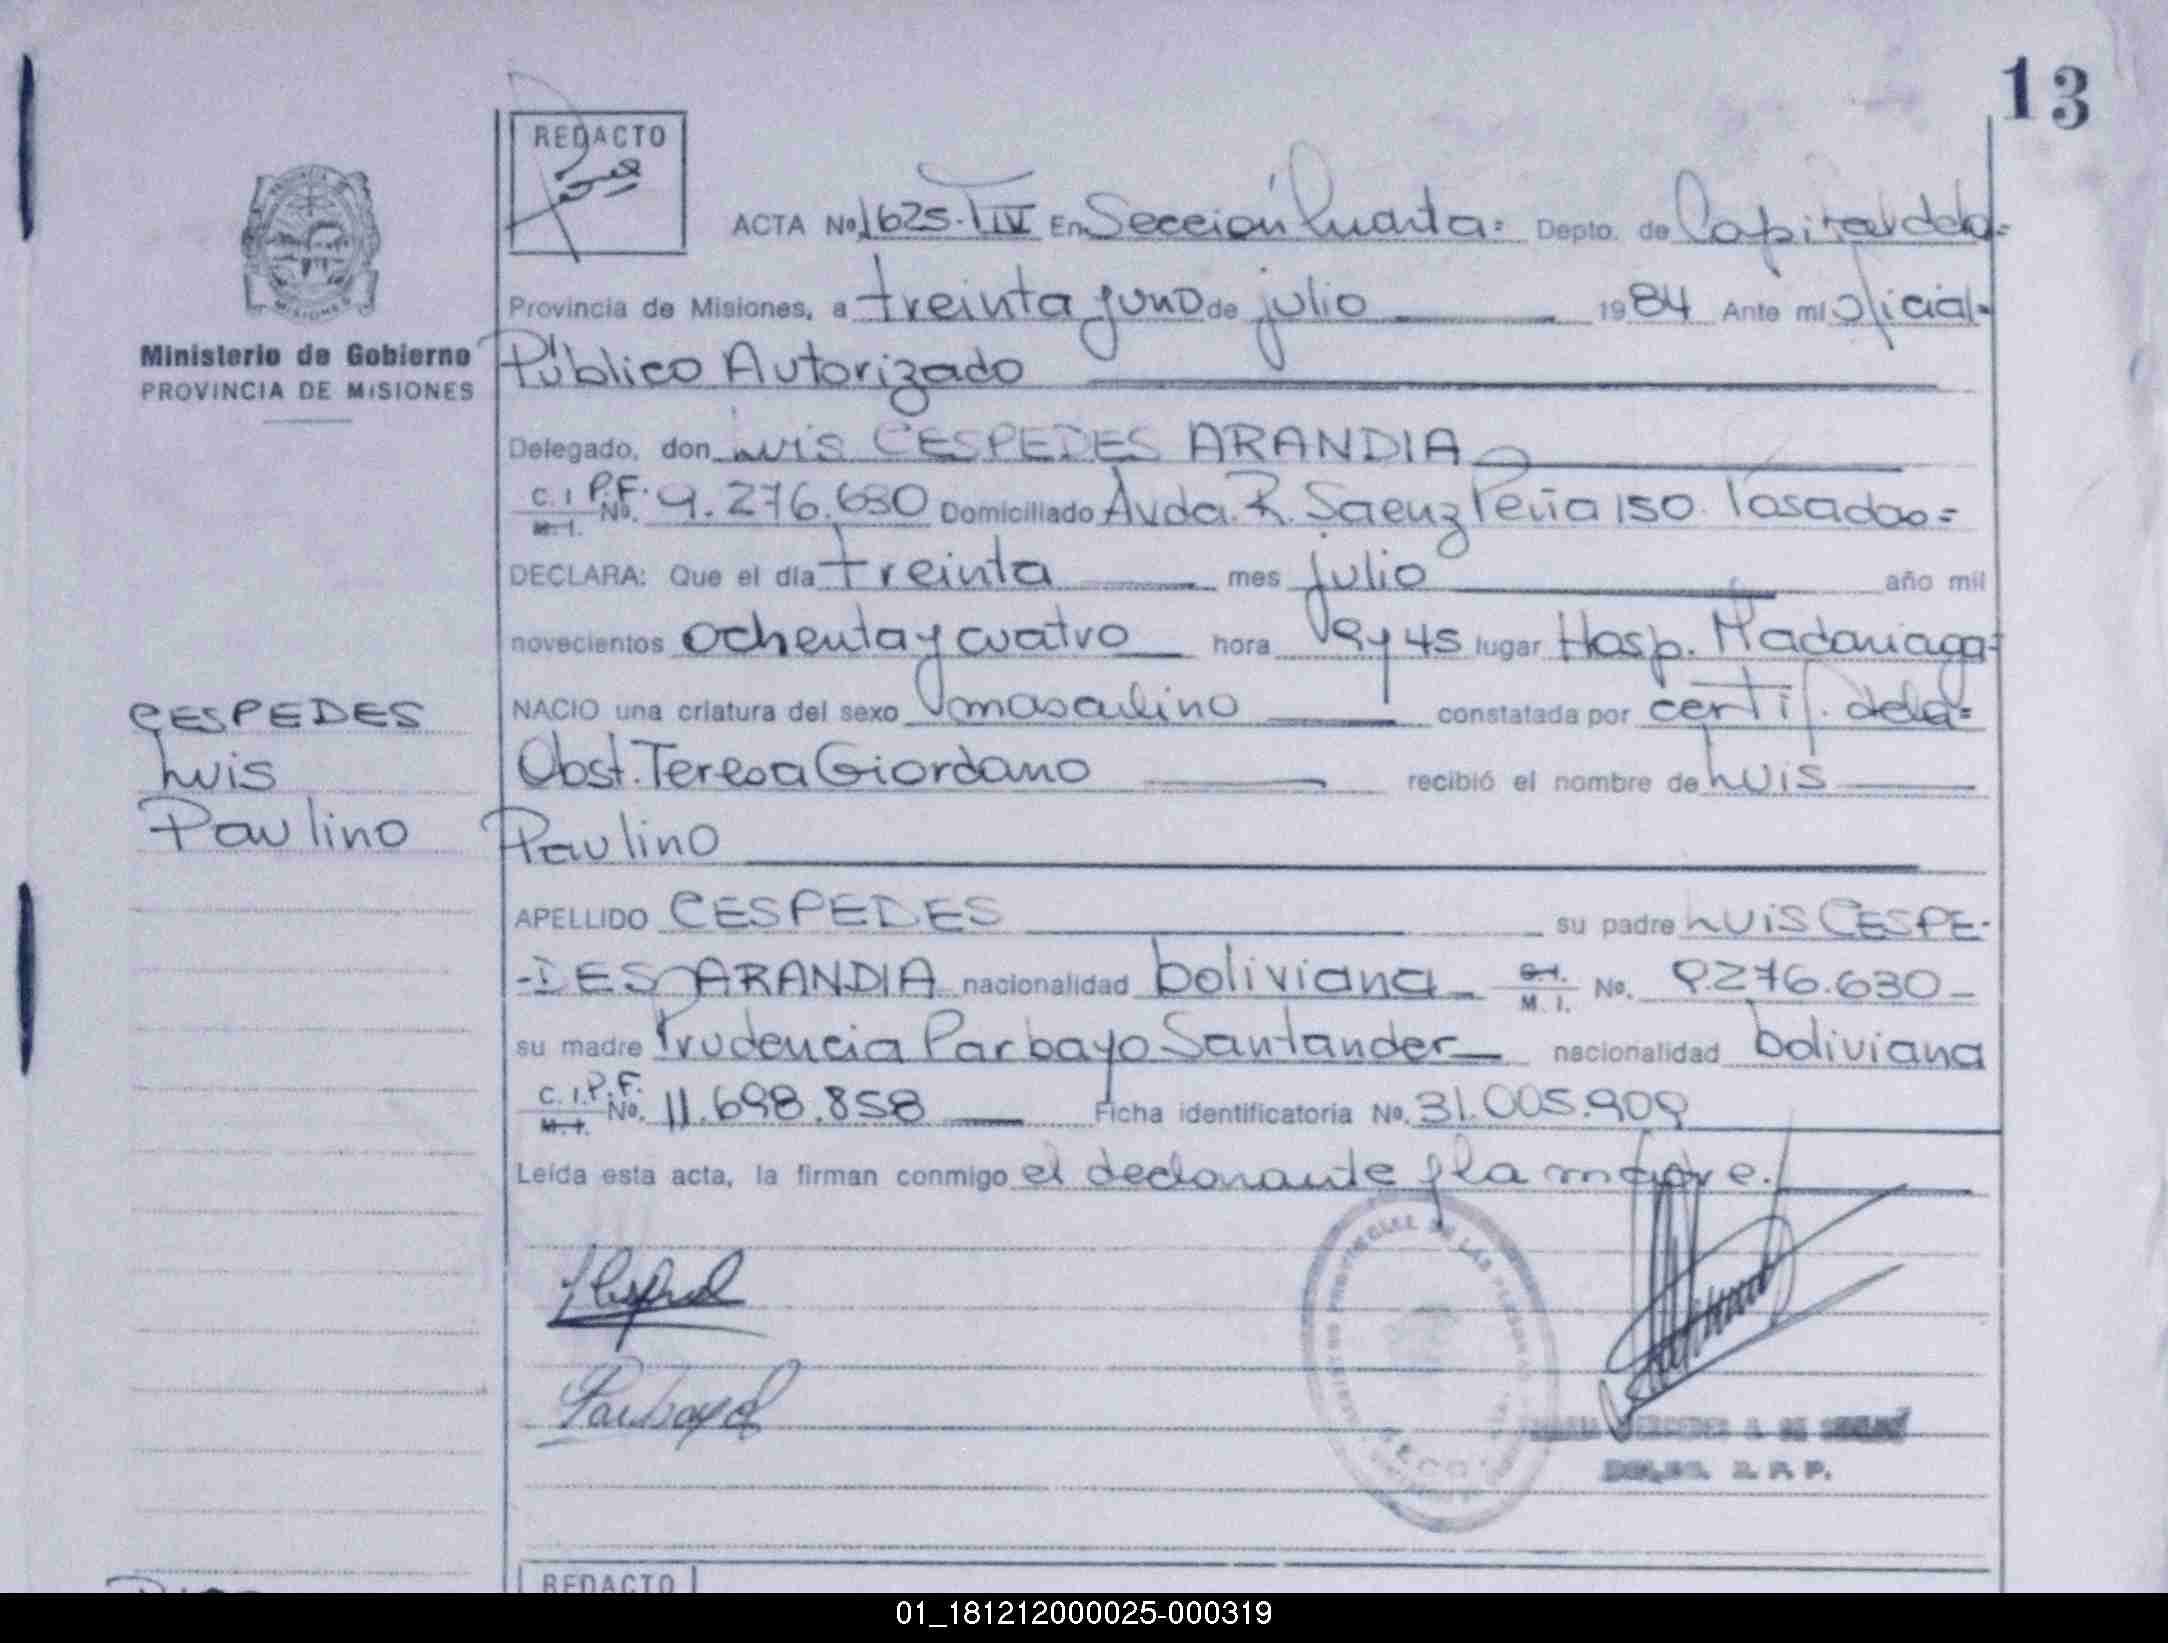 13
REDACTO
ACTA No 1625-T IV En Sección Cuarta= Depto. de Capital de la=
Provincia de Misiones, a treinta y uno de julio 1984 Ante mi Oficial-
Ministerio de Gobierno
PROVINCIA DE MISIONES
Público Autorizado
Delegado, don Luis CESPEDES ARANDIA
C. I. P.F. M. I. No. 9.276.630 Domiciliado Avda. R. Saenz Peña 150. Posadas=
DECLARA: Que el día treinta mes julio año mil
novecientos ochenta y cuatro hora 19 y 45 lugar Hosp. Madariaga=
NACIO una criatura del sexo masculino constatada por certif. de la=
Obst. Teresa Giordano recibió el nombre de Luis
Paulino
CESPEDES
Luis
Paulino
APELLIDO CESPEDES su padre Luis CESPE-
-DES ARANDIA nacionalidad boliviana C. I. M. I. No. 9.276.630
su madre Prudencia Parbayo Santander nacionalidad boliviana
C. I. P.F. M. I. No. 11.698.858 Ficha identificatoria No. 31.005.909
Leída esta acta, la firman conmigo el declarante y la madre.
REGISTRO PROVINCIAL DE LAS PERSONAS
MERCEDES
REDACTO
01_181212000025-000319